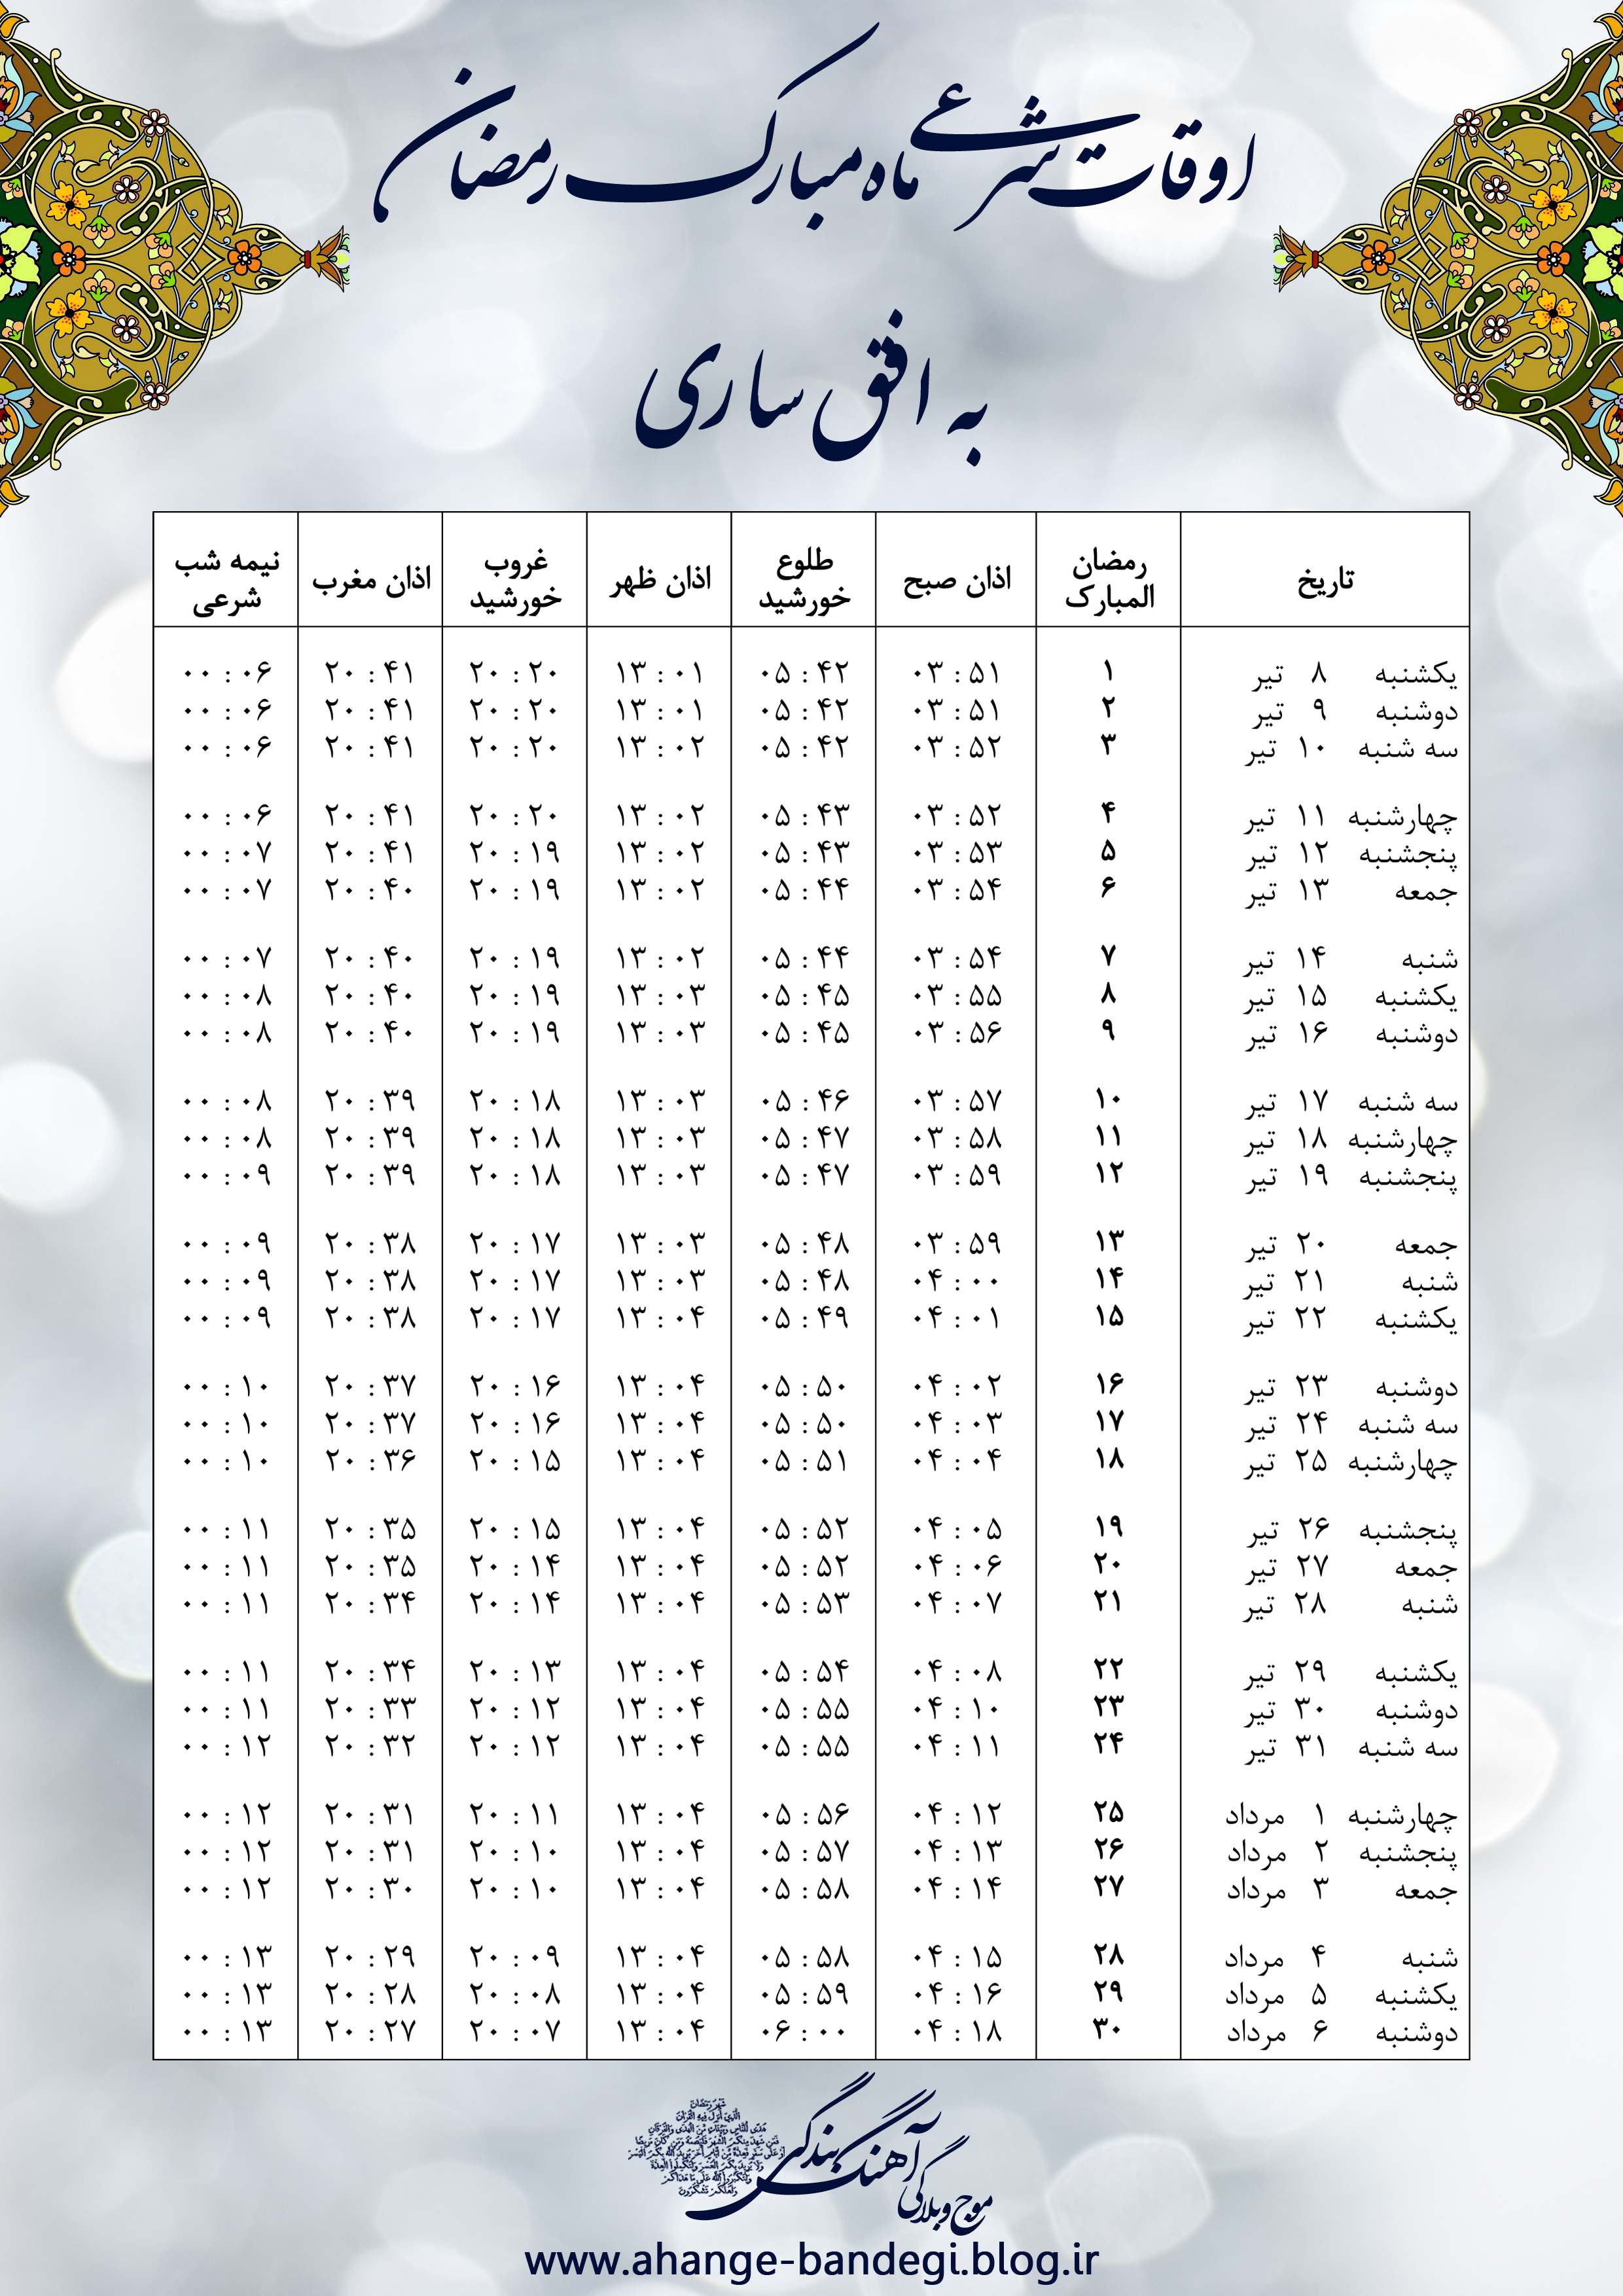 اوقات شرعی ماه مبارک رمضان
به افق ساری
تاریخ رمضان المبارک اذان صبح طلوع خورشید اذان ظهر غروب خورشید اذان مغرب نیمه شب شرعی
یکشنبه ۸ تیر ۱ ۰۳:۵۱ ۰۵:۴۲ ۱۳:۰۱ ۲۰:۲۰ ۲۰:۴۱ ۰۰:۰۶
دوشنبه ۹ تیر ۲ ۰۳:۵۱ ۰۵:۴۲ ۱۳:۰۱ ۲۰:۲۰ ۲۰:۴۱ ۰۰:۰۶
سه شنبه ۱۰ تیر ۳ ۰۳:۵۲ ۰۵:۴۲ ۱۳:۰۲ ۲۰:۲۰ ۲۰:۴۱ ۰۰:۰۶
چهارشنبه ۱۱ تیر ۴ ۰۳:۵۲ ۰۵:۴۳ ۱۳:۰۲ ۲۰:۲۰ ۲۰:۴۱ ۰۰:۰۶
پنجشنبه ۱۲ تیر ۵ ۰۳:۵۳ ۰۵:۴۳ ۱۳:۰۲ ۲۰:۱۹ ۲۰:۴۱ ۰۰:۰۷
جمعه ۱۳ تیر ۶ ۰۳:۵۴ ۰۵:۴۴ ۱۳:۰۲ ۲۰:۱۹ ۲۰:۴۰ ۰۰:۰۷
شنبه ۱۴ تیر ۷ ۰۳:۵۴ ۰۵:۴۴ ۱۳:۰۲ ۲۰:۱۹ ۲۰:۴۰ ۰۰:۰۷
یکشنبه ۱۵ تیر ۸ ۰۳:۵۵ ۰۵:۴۵ ۱۳:۰۳ ۲۰:۱۹ ۲۰:۴۰ ۰۰:۰۸
دوشنبه ۱۶ تیر ۹ ۰۳:۵۶ ۰۵:۴۵ ۱۳:۰۳ ۲۰:۱۹ ۲۰:۴۰ ۰۰:۰۸
سه شنبه ۱۷ تیر ۱۰ ۰۳:۵۷ ۰۵:۴۶ ۱۳:۰۳ ۲۰:۱۸ ۲۰:۳۹ ۰۰:۰۸
چهارشنبه ۱۸ تیر ۱۱ ۰۳:۵۸ ۰۵:۴۷ ۱۳:۰۳ ۲۰:۱۸ ۲۰:۳۹ ۰۰:۰۸
پنجشنبه ۱۹ تیر ۱۲ ۰۳:۵۹ ۰۵:۴۷ ۱۳:۰۳ ۲۰:۱۸ ۲۰:۳۹ ۰۰:۰۹
جمعه ۲۰ تیر ۱۳ ۰۳:۵۹ ۰۵:۴۸ ۱۳:۰۳ ۲۰:۱۷ ۲۰:۳۸ ۰۰:۰۹
شنبه ۲۱ تیر ۱۴ ۰۴:۰۰ ۰۵:۴۸ ۱۳:۰۳ ۲۰:۱۷ ۲۰:۳۸ ۰۰:۰۹
یکشنبه ۲۲ تیر ۱۵ ۰۴:۰۱ ۰۵:۴۹ ۱۳:۰۴ ۲۰:۱۷ ۲۰:۳۸ ۰۰:۰۹
دوشنبه ۲۳ تیر ۱۶ ۰۴:۰۲ ۰۵:۵۰ ۱۳:۰۴ ۲۰:۱۶ ۲۰:۳۷ ۰۰:۱۰
سه شنبه ۲۴ تیر ۱۷ ۰۴:۰۳ ۰۵:۵۰ ۱۳:۰۴ ۲۰:۱۶ ۲۰:۳۷ ۰۰:۱۰
چهارشنبه ۲۵ تیر ۱۸ ۰۴:۰۴ ۰۵:۵۱ ۱۳:۰۴ ۲۰:۱۵ ۲۰:۳۶ ۰۰:۱۰
پنجشنبه ۲۶ تیر ۱۹ ۰۴:۰۵ ۰۵:۵۲ ۱۳:۰۴ ۲۰:۱۵ ۲۰:۳۵ ۰۰:۱۱
جمعه ۲۷ تیر ۲۰ ۰۴:۰۶ ۰۵:۵۲ ۱۳:۰۴ ۲۰:۱۴ ۲۰:۳۵ ۰۰:۱۱
شنبه ۲۸ تیر ۲۱ ۰۴:۰۷ ۰۵:۵۳ ۱۳:۰۴ ۲۰:۱۴ ۲۰:۳۴ ۰۰:۱۱
یکشنبه ۲۹ تیر ۲۲ ۰۴:۰۸ ۰۵:۵۴ ۱۳:۰۴ ۲۰:۱۳ ۲۰:۳۴ ۰۰:۱۱
دوشنبه ۳۰ تیر ۲۳ ۰۴:۱۰ ۰۵:۵۵ ۱۳:۰۴ ۲۰:۱۲ ۲۰:۳۳ ۰۰:۱۱
سه شنبه ۳۱ تیر ۲۴ ۰۴:۱۱ ۰۵:۵۵ ۱۳:۰۴ ۲۰:۱۲ ۲۰:۳۲ ۰۰:۱۲
چهارشنبه ۱ مرداد ۲۵ ۰۴:۱۲ ۰۵:۵۶ ۱۳:۰۴ ۲۰:۱۱ ۲۰:۳۱ ۰۰:۱۲
پنجشنبه ۲ مرداد ۲۶ ۰۴:۱۳ ۰۵:۵۷ ۱۳:۰۴ ۲۰:۱۰ ۲۰:۳۱ ۰۰:۱۲
جمعه ۳ مرداد ۲۷ ۰۴:۱۴ ۰۵:۵۸ ۱۳:۰۴ ۲۰:۱۰ ۲۰:۳۰ ۰۰:۱۲
شنبه ۴ مرداد ۲۸ ۰۴:۱۵ ۰۵:۵۸ ۱۳:۰۴ ۲۰:۰۹ ۲۰:۲۹ ۰۰:۱۳
یکشنبه ۵ مرداد ۲۹ ۰۴:۱۶ ۰۵:۵۹ ۱۳:۰۴ ۲۰:۰۸ ۲۰:۲۸ ۰۰:۱۳
دوشنبه ۶ مرداد ۳۰ ۰۴:۱۸ ۰۶:۰۰ ۱۳:۰۴ ۲۰:۰۷ ۲۰:۲۷ ۰۰:۱۳
موج وبلاگی آهنگ بندگی
شهر رمضان
الذی انزل فیه القرآن
www.ahange-bandegi.blog.ir